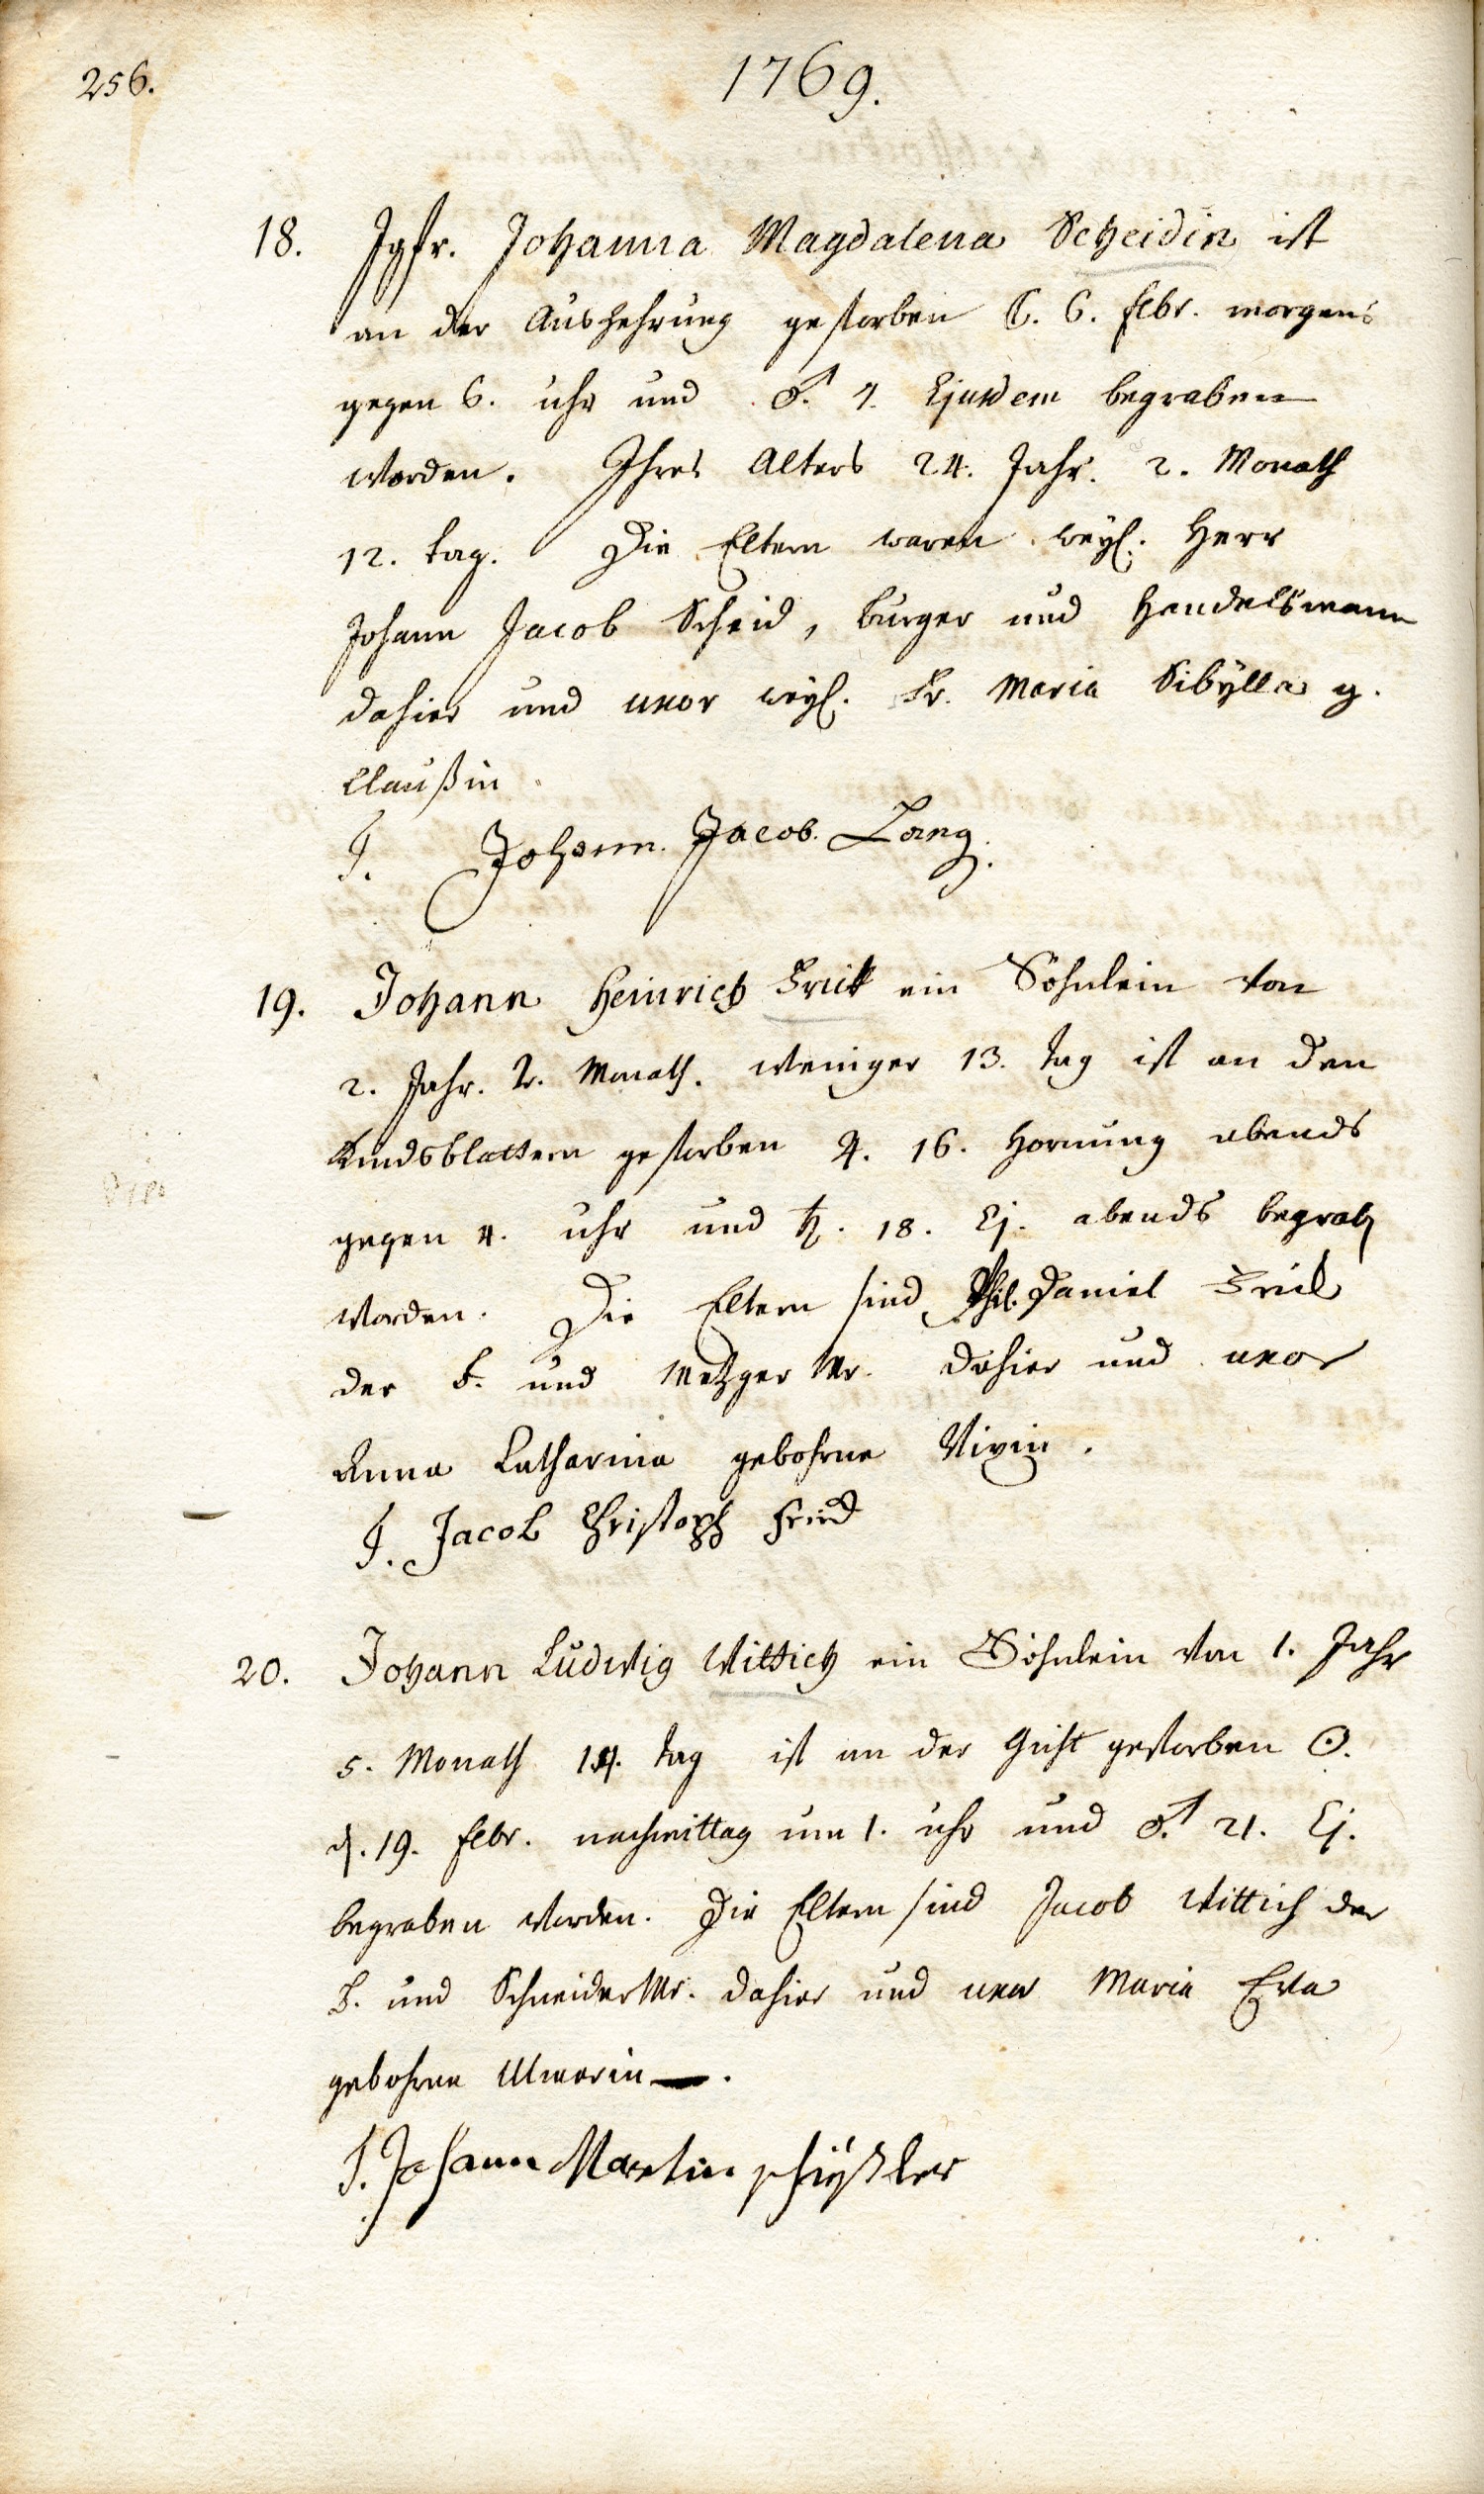 256.
1769.
18. Jgfr. Johanna Magdalena Scheidin ist
an der Auszehrung gestorben ☾. 6. Febr. morgens
gegen 6. uhr und ♂. 7. Ejusdem begraben
worden. Ihres Alters 24. Jahr. 2. Monath
12. tag. Die Eltern waren weyl. Herr
Johann Jacob Scheid, burger und Handelsmann
dahier und uxor weyl. Fr. Maria Sibÿlla g.
Claußin
T. Johann. Jacob. Lang.
19. Johann Heinrich ein Söhnlein von
2. Jahr. 2. Monath. weniger 13. tag ist an den
Kindsblattern gestorben ♃. 16. Hornung abends
gegen 4. uhr und ♄. 18. Ej. abends begrab
worden. Die Eltern sind Phil. Daniel
der b. und Metzger Mr. dahier und uxor
Anna Catharina gebohrne
T. Jacob Christoph
20. Johann Ludwig Wittich ein Söhnlein von 1. Jahr
5. Monath 14. tag ist an der Gicht gestorben ☉.
d. 19. Febr. nachmittag um 1. uhr und ♂ 21. Ej.
begraben worden. Die Eltern sind Jacob Wittich der
b. und Schneider Mr. dahier und uxor Maria Eva
gebohrne Ulmerin.
T. Johann Martin